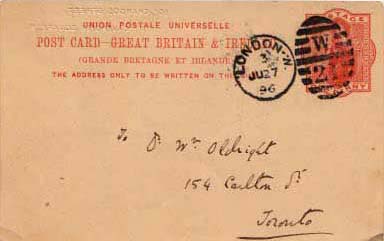 UNION POSTALE UNIVERSELLE
POST CARD—GREAT BRITAIN & IRE
(GRANDE BRETAGNE ET IRLANDE)
THE ADDRESS ONLY TO BE WRITTEN ON THE
LONDON.W.
3
JU27
96
W
21
To Dr Wm Oldright
154 Carlton St
Toronto